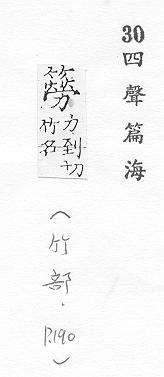 30四聲篇海
力到切
竹名
(竹部.P.190)